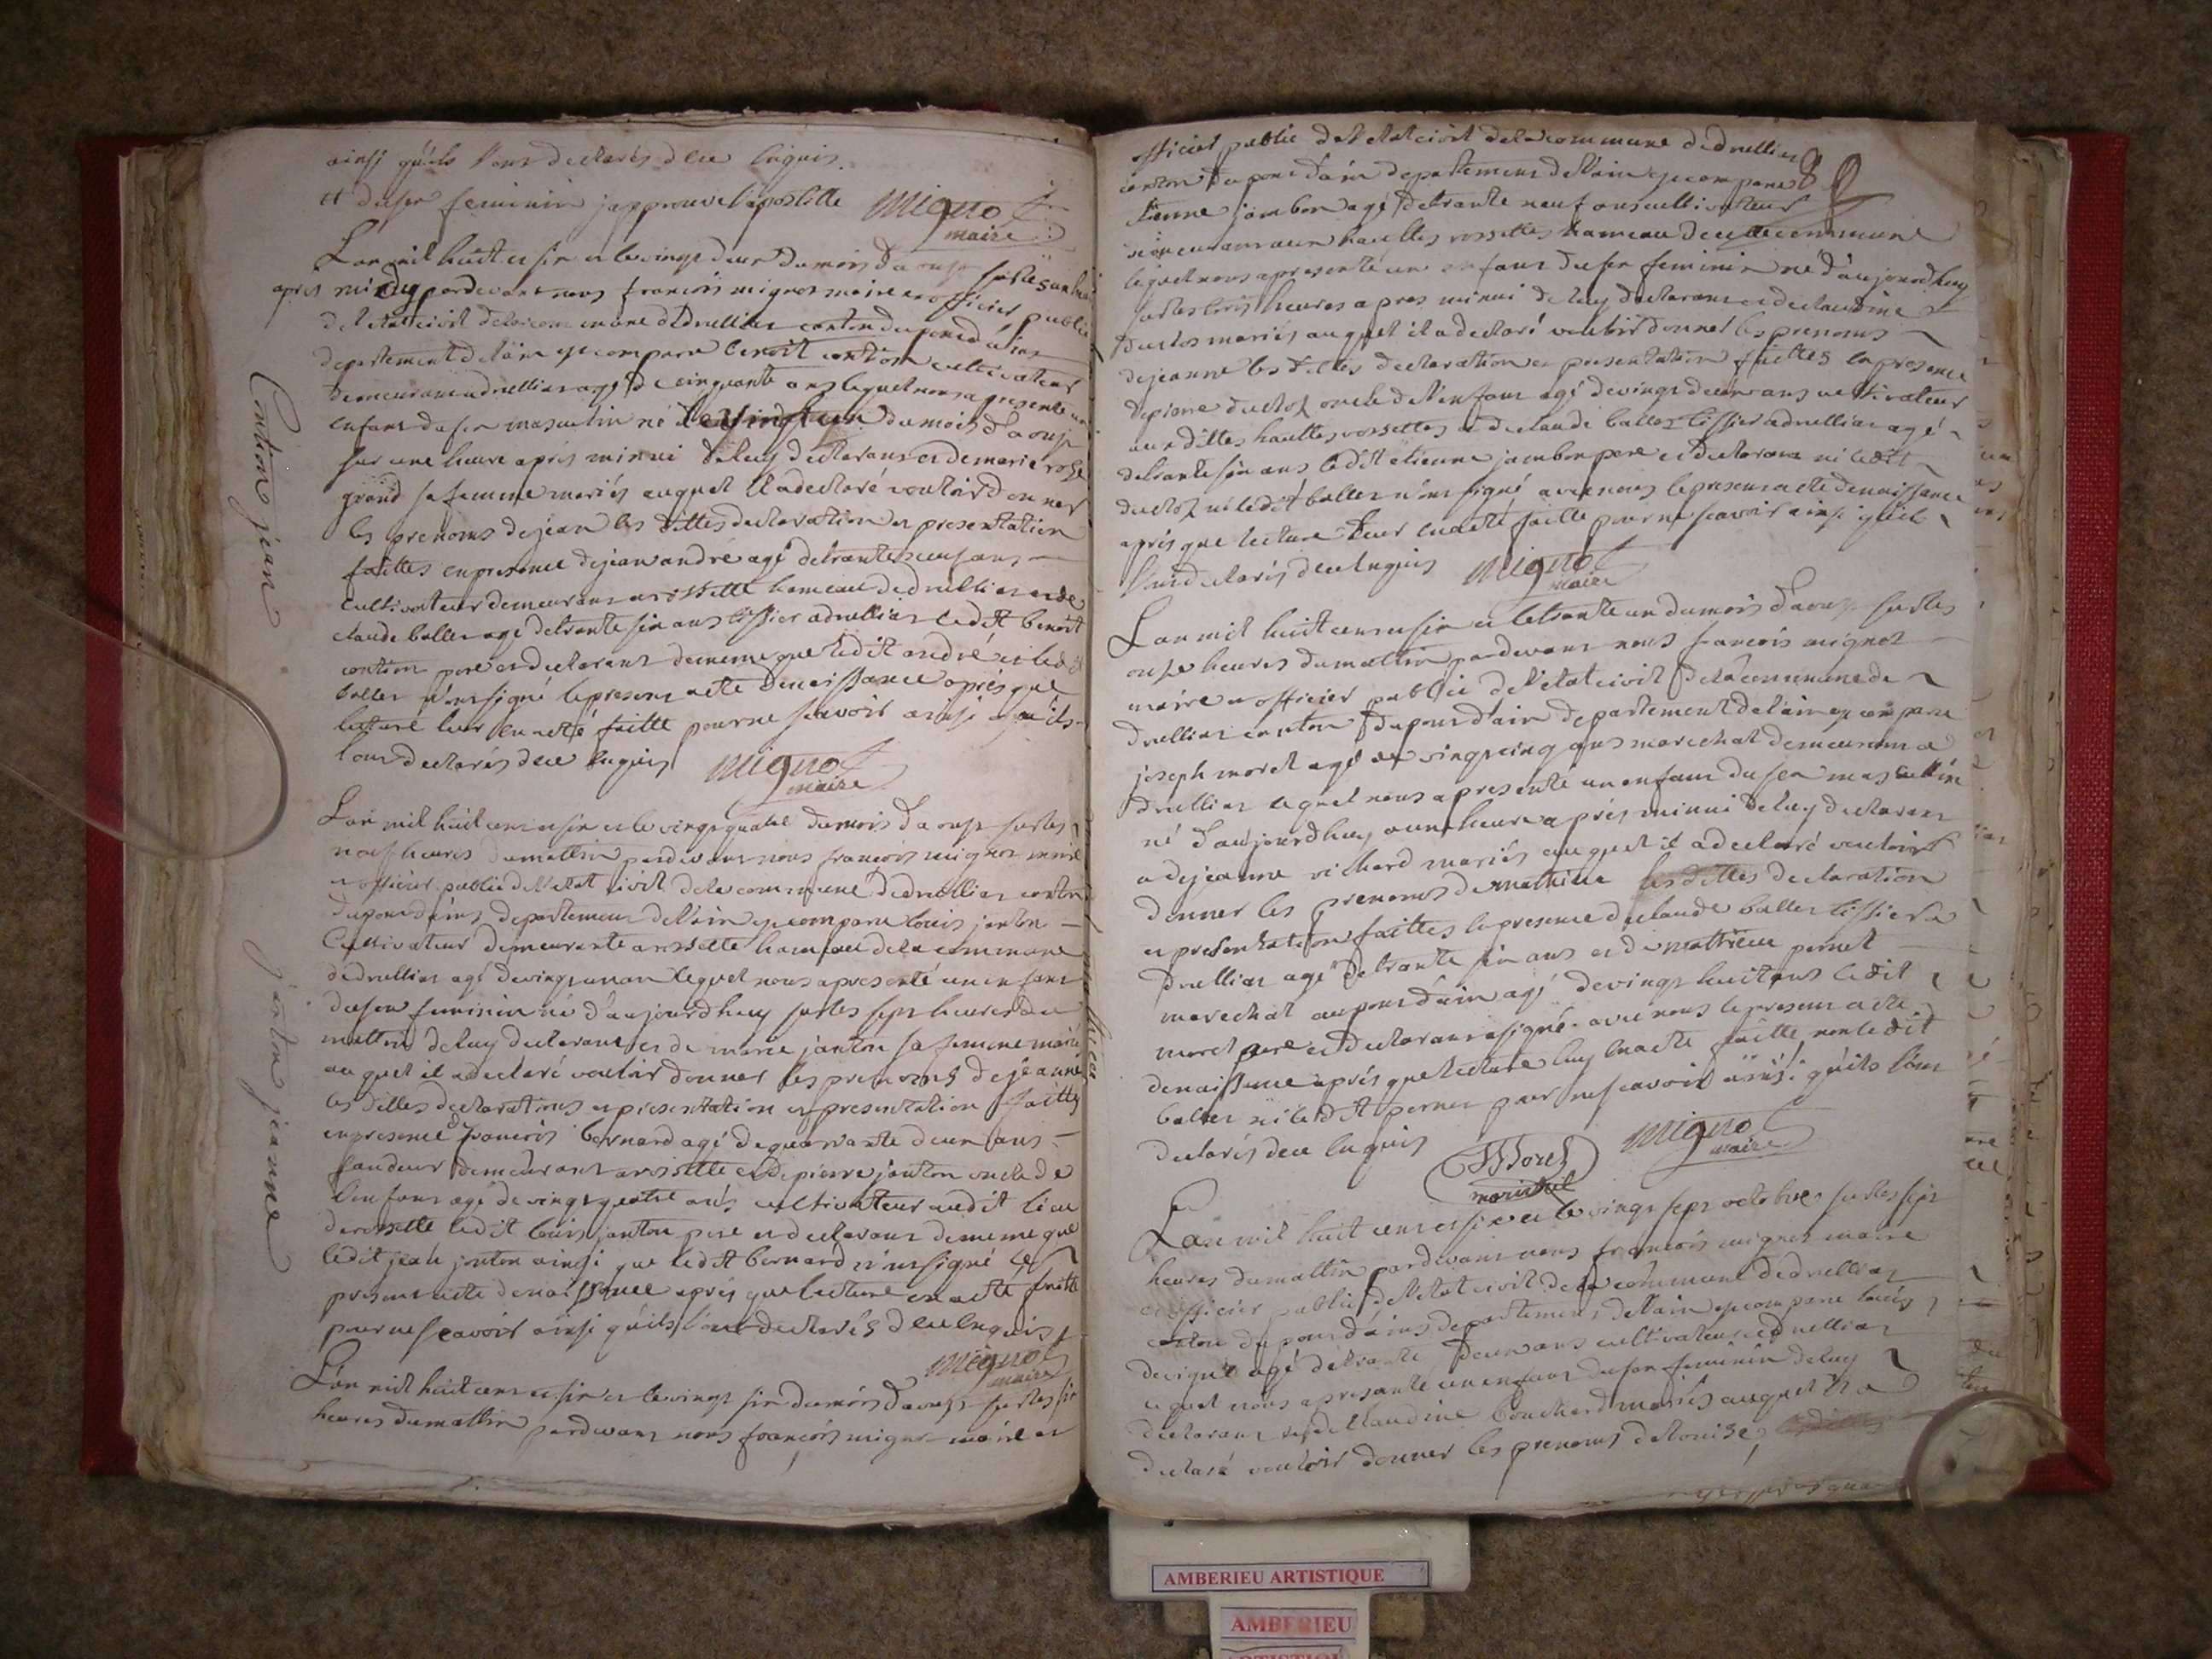 ainsi quils l'ons declarés dece enquis
et du sex feminin japprouve l'apostille Mignot
maire
L'an mil huit cens six et le vingt deux du mois d'aoust sur les une heure
apres midy pardevant nous francois mignot maire et officier public
de l'etat civil de la commune de druillias canton du pont d'ains
departement de l'ain est comparu benoit contion cultivateur
demeurant a druillias agé de cinquante ans lequel nous a presenté un
enfant du sex masculin né le vingt un du mois d'aoust
sur une heure apres minui de luy declarant et de marie rose
grand sa femme mariés auquel il a declaré vouloir donner
les prenoms de jean les dittes declaration et presentation
faittes en presence de jean andré agé de trante neuf ans
cultivateur demeurant a rossette hameau de druillias et de
claude ballet agé de trante six ans tissier a druillias ledit benoit
contion pere et declarant de meme que ledit andré et ledit
ballet n'ons signé le present acte de naissance apres que
lecture leur en a eté faitte pour ne scavoir ainsi quils
l'ons declarés de ce enquis Mignot
maire
Contion jean
L'an mil huit cens et six et le vingt quatre du mois d'aoust sur les
neuf heures du mattin pardevant nous francois mignot maire
et officier public de l'etat civil de la commune de druillias canton
du pont d'ains departement de l'ain est comparu louis janton
cultivateur demeurant a rossette hameau de la commune
de druillias agé de vingt un an lequel nous a presenté un enfant
du sex feminin né d'aujourdhuy sur les sept heures du
mattin de luy declarant et de marie janton sa femme mariés
auquel il a declaré vouloir donner les prenoms de jeanne
les dittes declarations et presentation et presentation faittes
en presence de francois bernard agé de quarante deux ans
demeurant a rossette et de pierre janton oncle de
l'enfant agé de vingt quatre ans cultivateur audit lieu
de rossette ledit louis janton pere et declarant de meme que
ledit jean janton ainsi que ledit bernard n'ons signé le
present acte de naissance apres que lecture en a eté faitte
pour ne scavoir ainsi quils l'ons declarés de ce enquis
Mignot
maire
janton jeanne
L'an mil huit cens et six et le vingt six du mois d'aoust sur les six
heures du mattin pardevant nous francois mignot maire et
officier public de l'etat civil de la commune de druillias
canton du pont d'ain departement de l'ain est comparu
etienne jambon agé de trante neuf ans cultivateur
demeurant aux hauttes rossettes hameau de cette commune
lequel nous a presenté un enfant du sex feminin né d'aujourdhuy
sur les trois heures apres minui de luy declarant et de claudine
duclos mariés auquel il a declaré vouloir donner les prenoms
de jeanne les dittes declaration et presentation faittes en presence
de pierre duclos oncle de l'enfant agé de vingt deux ans cultivateur
aux dittes hauttes rossettes et de claude ballet tissier a druillias agé
de trante six ans ledit etienne jambon pere et declarant ni ledit
duclos ni ledit ballet n'ons signé avec nous le present acte de naissance
apres que lecture leur en a eté faitte pour ne scavoir ainsi quils
l'ons declarés de ce enquis Mignot
maire
L'an mil huit cens et six et le trante un du mois d'aoust sur les
onze heures du mattin pardevant nous francois mignot
maire et officier public de l'etat civil de la commune de
druillias canton du pont d'ain departement de l'ain est comparu
joseph morel agé de vingt cinq ans marechal demeurant a
druillias lequel nous a presenté un enfant du sex masculin
né d'aujourdhuy a une heure apres minui de luy declarant
et de jeanne richard mariés auquel il a declaré vouloir
donner les prenoms de mathieu les dittes declaration
et presentation faittes en presence de claude ballet tissier a
druillias agé de trante six ans et de mathieu pernet
marechal au pont d'ain agé de vingt huit ans ledit
morel pere et declarant a signé avec nous le present acte
de naissance apres que lecture luy en a eté faitte non ledit
ballet ni ledit pernet pour ne scavoir ainsi quils l'ons
declarés de ce enquis Mignot
maire
J Morel
marichal
L'an mil huit cens et six et le vingt sept octobre sur les sept
heures du mattin pardevant nous francois mignot maire
et officier public de l'etat civil de la commune de druillias
canton du pont d'ains departement de l'ain est comparu louis
agé de trante deux ans cultivateur a druillias
lequel nous a presanté un enfant du sex feminin de luy
declarant et de claudine bouchard mariés auquel il a
declaré vouloir donner les prenoms de louise
AMBERIEU ARTISTIQUE
AMBERIEU
ARTISTIQUE